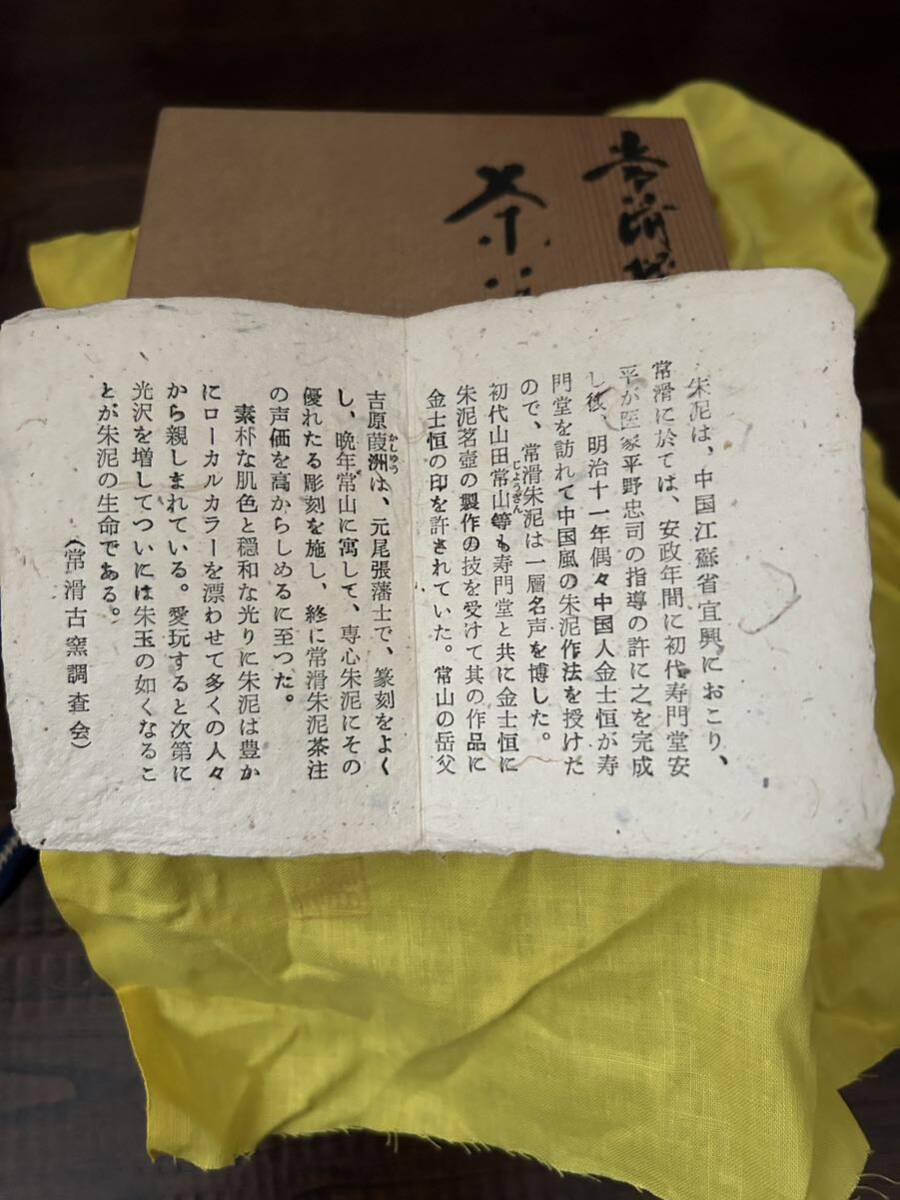 常滑
茶
朱泥は、中国江蘇省宜興におこり、
常滑に於ては、安政年間に初代寿門堂安
平が医家平野忠司の指導の許に之を完成
し後、明治十一年偶々中国人金士恒が寿
門堂を訪れて中国風の朱泥作法を授けた
ので、常滑朱泥は一層名声を博した。
初代山田常山等も寿門堂と共に金士恒に
じょうざん
朱泥茗壺の製作の技を受けて其の作品に
金士恒の印を許されていた。常山の岳父
吉原葭洲は、元尾張藩士で、篆刻をよく
かしゅう
し、晩年常山に寓して、専心朱泥にその
優れたる彫刻を施し、終に常滑朱泥茶注
の声価を高からしめるに至つた。
素朴な肌色と穏和な光りに朱泥は豊か
にローカルカラーを漂わせて多くの人々
から親しまれている。愛玩すると次第に
光沢を増してついには朱玉の如くなるこ
とが朱泥の生命である。
(常滑古窯調査会)